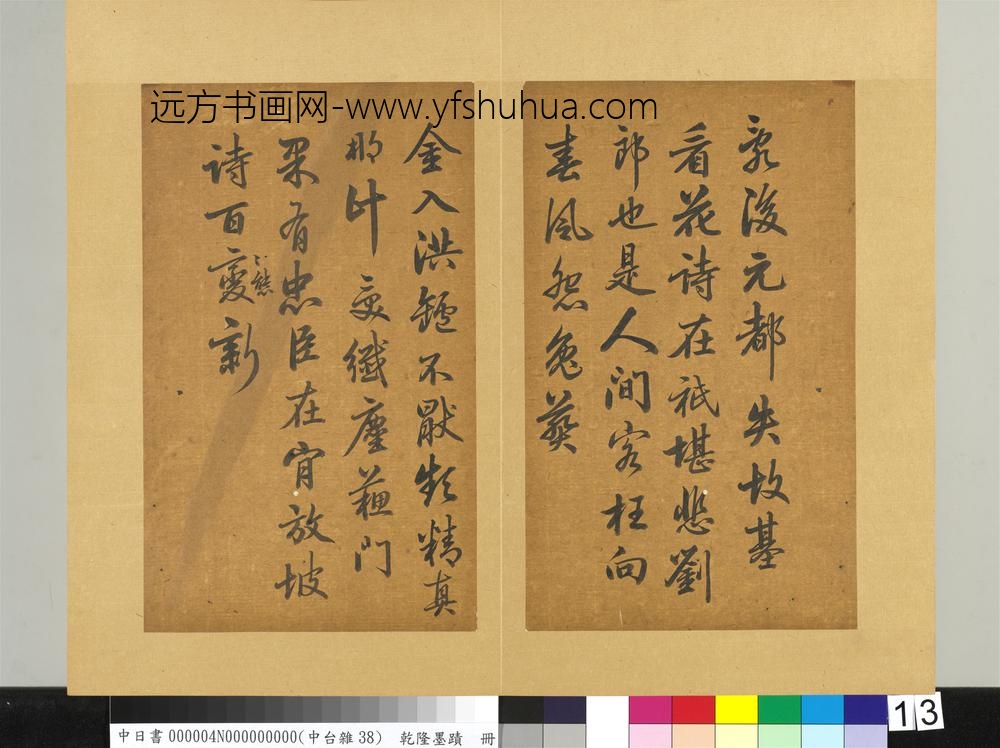 远方书画网-www.yfshuhua.com
亂後元都失故基
看花詩在祇堪悲劉
郎也是人間客枉向
春風怨兔葵
金入洪鑪不厭頻精真
那計受纖塵蘇門
果有忠臣在肯放坡
詩百變態新
中日書 000004N000000000(中台雜 38) 乾隆墨蹟 冊
13